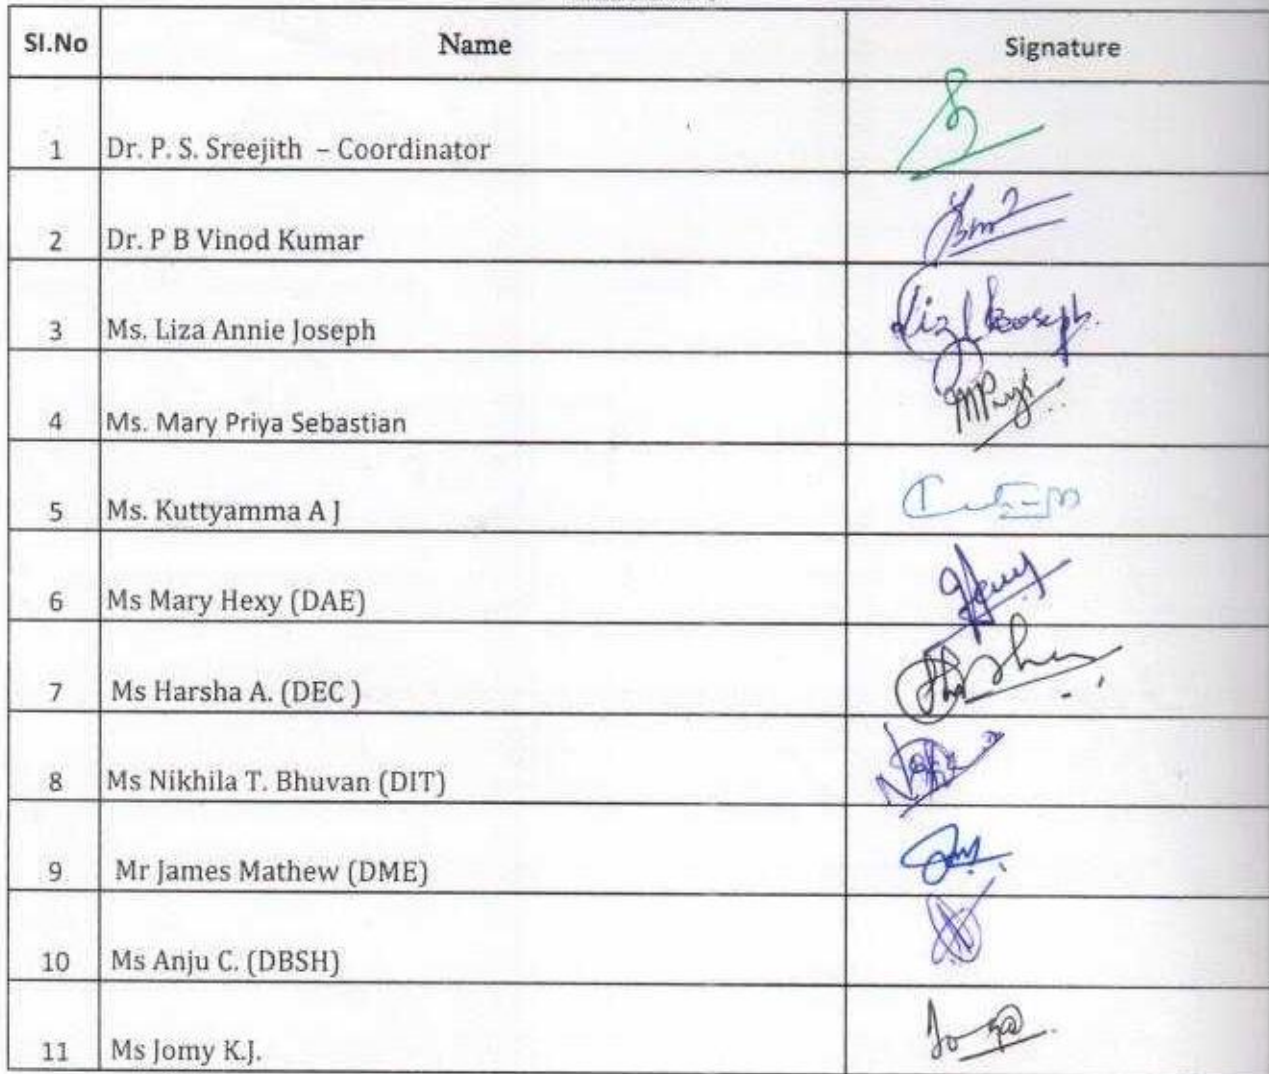 Sl.No Name Signature
1 Dr. P. S. Sreejith – Coordinator
2 Dr. P B Vinod Kumar
3 Ms. Liza Annie Joseph
4 Ms. Mary Priya Sebastian
5 Ms. Kuttyamma A J
6 Ms Mary Hexy (DAE)
7 Ms Harsha A. (DEC )
8 Ms Nikhila T. Bhuvan (DIT)
9 Mr James Mathew (DME)
10 Ms Anju C. (DBSH)
11 Ms Jomy K.J.